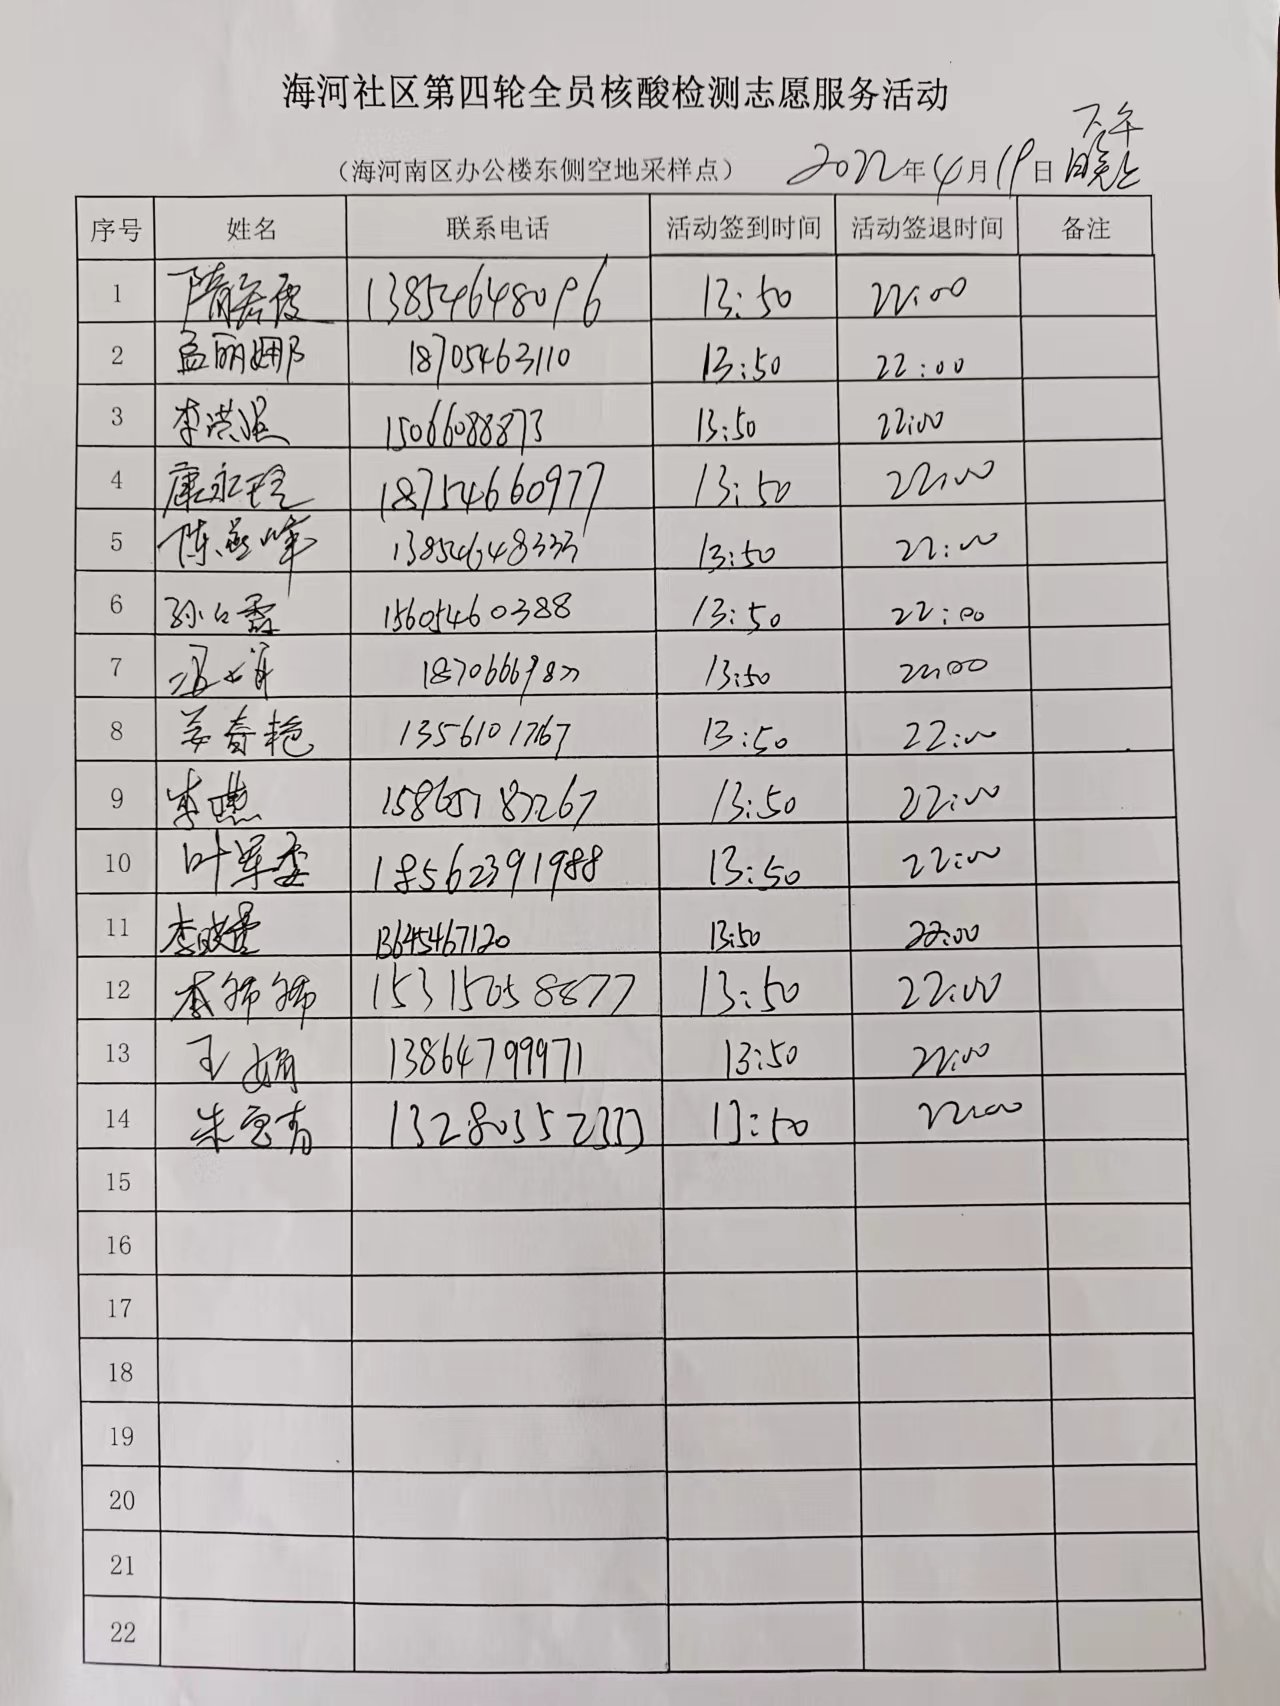 海河社区第四轮全员核酸检测志愿服务活动
下午
（海河南区办公楼东侧空地采样点） 2022年4月19日 晚上
序号 姓名 联系电话 活动签到时间 活动签退时间 备注
1 13854648096 13:50 22:00
2 孟丽娜 18705463110 13:50 22:00
3 李洪 15066088873 13:50 22:00
4 康永玲 18754660977 13:50 22:00
5 陈燕峰 13854648333 13:50 22:00
6 孙 霞 15605460388 13:50 22:00
7 13:50 22:00
8 姜春艳 1356101767 13:50 22:00
9 李 15865787267 13:50 22:00
10 叶军委 18562391988 13:50 22:00
11 李晓曼 13645467120 13:50 22:00
12 李师师 15315058877 13:50 22:00
13 王娟 13864799971 13:50 22:00
14 朱 青 13280352333 13:50 22:00
15
16
17
18
19
20
21
22